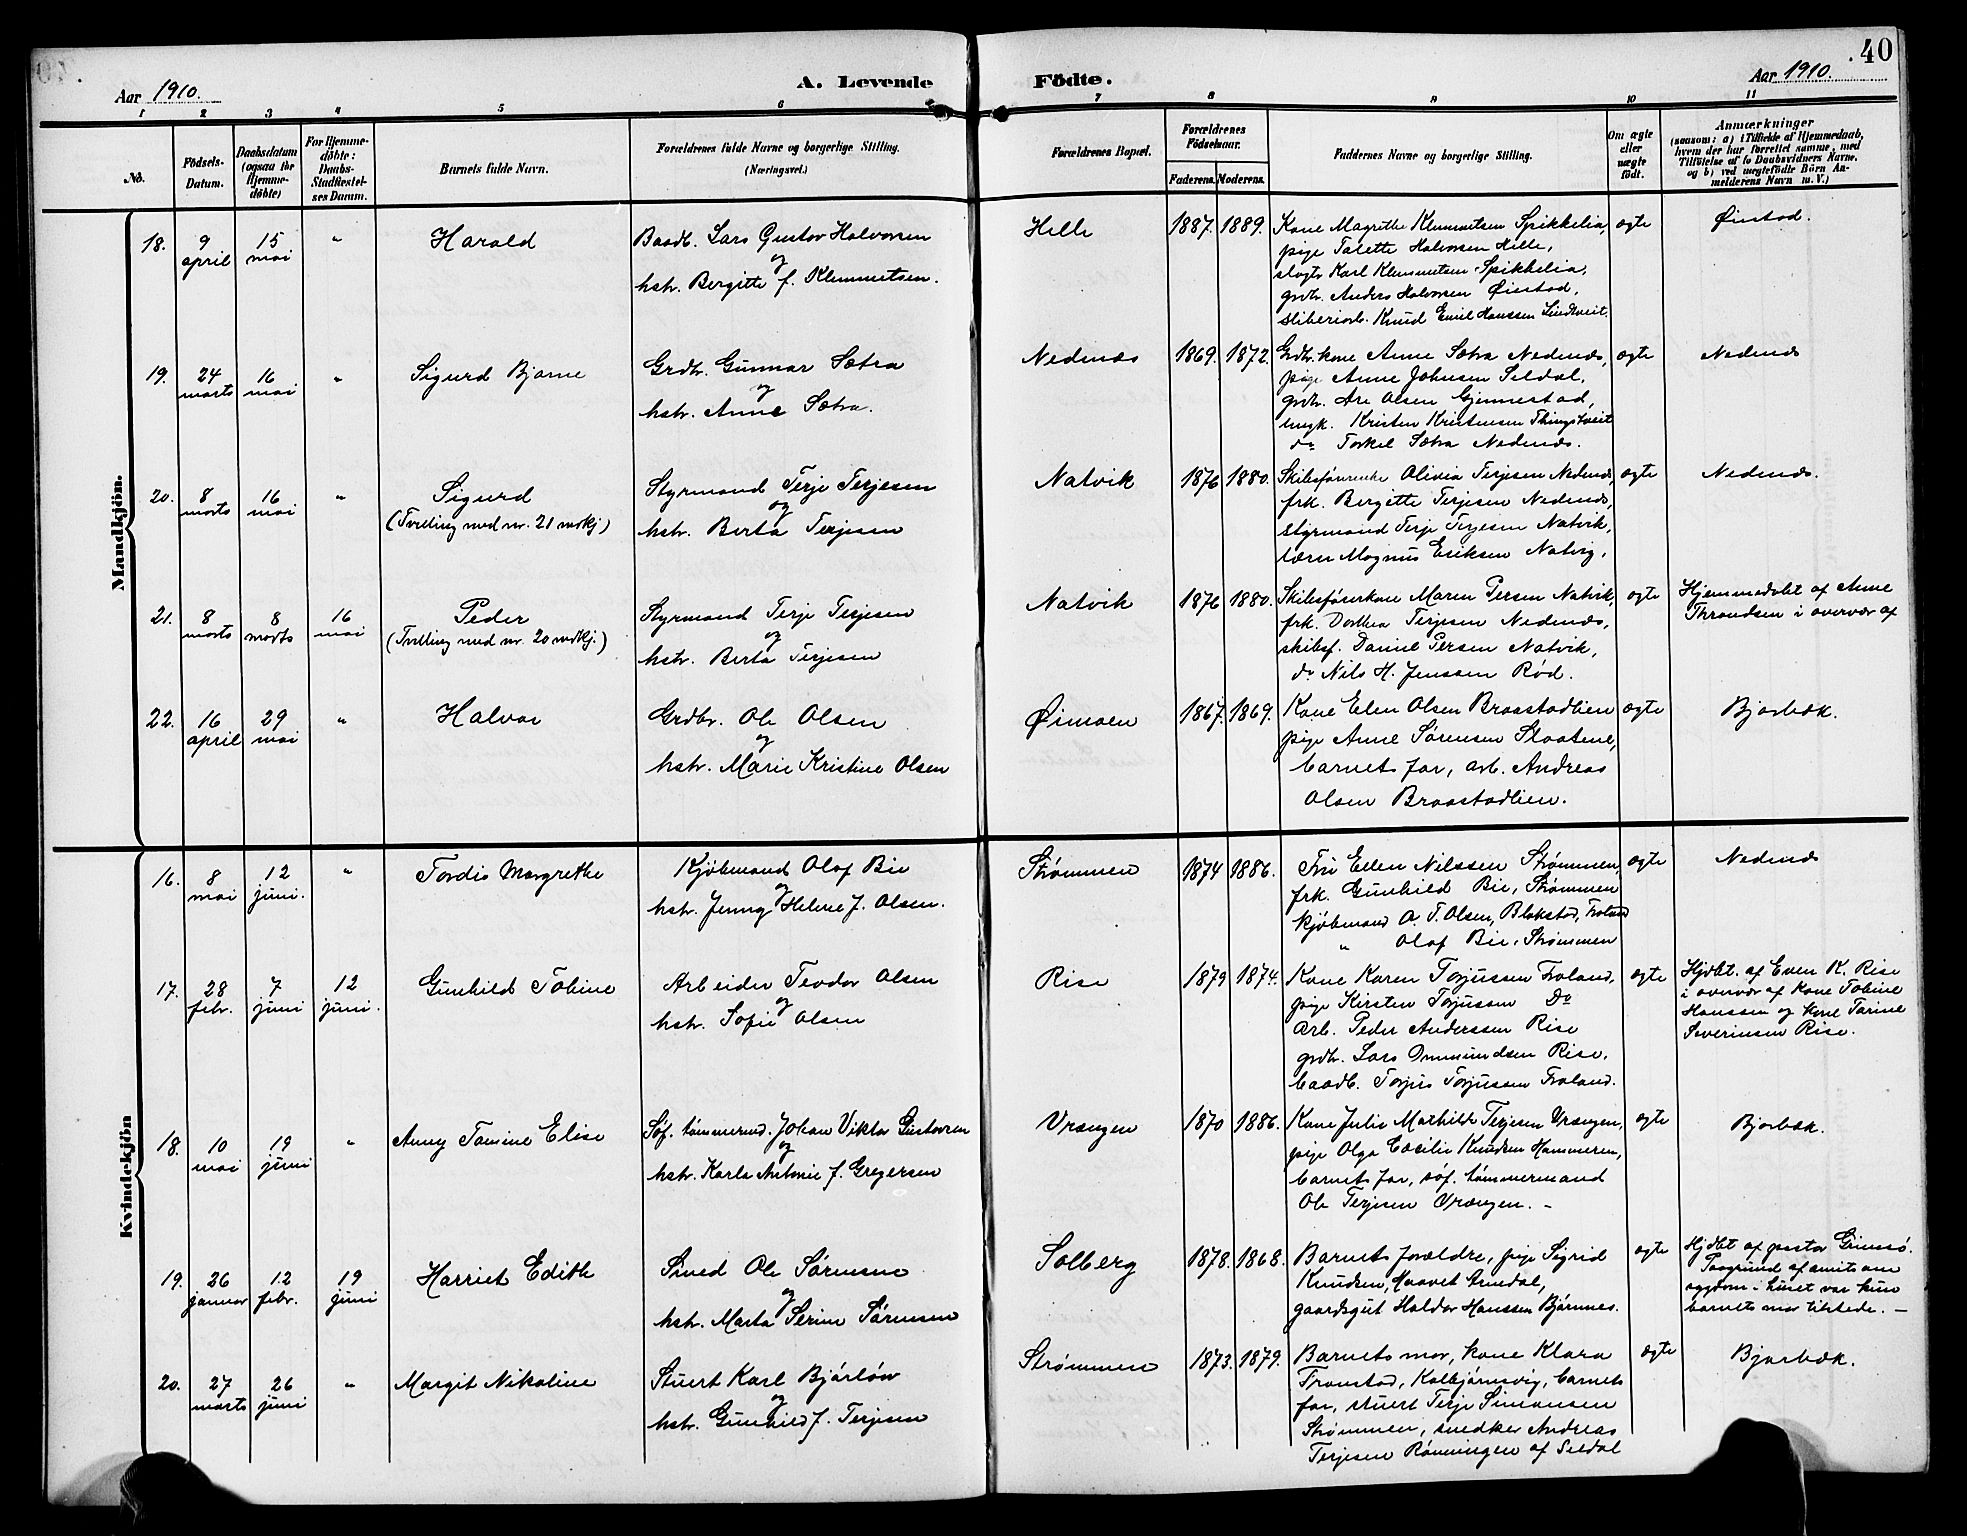 .40
Aar 1910.
A. Levende Födte.
Aar 1910.
1 2 3 4 5 6 7 8 9 10 11
No.
Födsels-
Datum.
Daabsdatum
(ogsaa for
Hjemme-
døbte)
For Hjemme-
døbte:
Daabs-
Stadfæstel-
ses Datum.
Barnets fulde Navn.
Forældrenes fulde Navne og borgerlige Stilling.
(Næringsvei.)
Forældrenes Bopæl.
Forældrenes
Födselsaar.
Faderens. Moderens.
Faddernes Navne og borgerlige Stilling.
Om ægte
eller
uægte
født.
Anmærkninger
(saasom: a) i Tilfælde af Hjemmedaab,
hvem der har forrettet samme, med
Tilföielse af to Daabsvidners Navne,
og b) ved uægtefödte Börn An-
melderens Navn m. V.)
Mandkjön.
18. 9 april 15 mai „ Harald
Baadb. Lars Gustav Halvorsen
og
hstr. Bergitte f. Klemmetsen.
Helle 1887. 1889.
Kone Magrethe Klemmetsen Spikkelia,
pige Talette Halvorsen Helle,
slagt. Karl Klemmetsen Spikkelia,
grdbr. Anders Halvorsen Øinstad,
sliberiarb. Knud Emil Hanssen Lindtveit.
ægte Øistad.
19. 24 marts 16 mai „ Sigurd Bjarne
Grdbr. Gunnar Sætra
og
hstr. Anne Sætra.
Nedenæs 1869. 1872.
Grdbr. kone Anne Sætra Nedenæs,
pige Anne Johnsen Seldal,
grdbr. Are Olsen Gjennestad,
ungk. Kristen Kristensen Thingstveit
do Torkel Sætra Nedenæs.
ægte Nedenæs
20. 8 marts 16 mai „ Sigurd
(Tvilling med nr. 21 mdkj.)
Styrmand Terje Terjesen
og
hstr. Berta Terjesen
Natvik 1876 1880.
Skibsførerenke Olivia Terjesen Nedenæs,
frk. Bergitte Terjesen Nedenæs,
styrmand Terje Terjesen Natvik,
lærer Magnus Eriksen Natvig.
ægte Nedenæs.
21. 8 marts 8 marts 16 mai Peder
(Tvilling med nr. 20 mdkj.)
Styrmand Terje Terjesen
og
hstr. Berta Terjesen
Natvik 1876 1880.
Skibsførerkone Maren Persen Natvik,
frk. Dorthea Terjesen Nedenæs,
skibsf. Daniel Persen Natvik,
do Nils H. Jenssen Rød.
ægte
Hjemmedøbt af Anne
Throndsen i overvær af
22. 16 april 29 mai „ Halvar
Grdbr. Ole Olsen
og
hstr. Marie Kristine Olsen
Øimoen 1867. 1869.
Kone Elen Olsen Braastadlien
pige Anne Sørensen Slaatene,
barnets far, arb. Andreas
Olsen Braastadlien.
ægte Bjorbæk.
Kvindekjön
16. 8 mai 12 juni. „ Tordis Margrethe
Kjøbmand Olaf Bie
og
hstr. Jenny Helene f. Olsen.
Strømmen 1874 1886.
Fru Ellen Nilssen Strømmen,
frk. Gunhild Bie, Strømmen
kjøbmand A. T. Olsen, Blakstad, Froland
„ Olaf Bie, Strømmen
ægte Nedenæs
17. 28 febr. 7 juni 12 juni. Gunhild Tobine
Arbeider Teodor Olsen
og
hstr. Sofie Olsen
Rise 1879 1874.
Kone Karen Torjussen Froland,
pige Kirsten Torjussen Do
arb. Peder Anderssen Rise
grdbr. Lars Ommundsen Rise,
baadb. Torjus Torjussen Froland.
ægte
Hjdbt. af Even K. Rise
i overvær af kone Tobine
Hanssen og kone Tarine
Severinsen Rise.
18. 10 mai 19 juni „ Anny Tomine Elise
Søf. tømmermd. Johan Viktor Gustavsen
og
hstr. Karla Antonie f. Gregersen
Vrængen 1870 1886.
Kone Julie Mathilde Terjesen Vrængen,
pige Olga Cecilie Knudsen Hammeren,
barnets far, søf. tømmermand
Ole Terjesen Vrængen. -
ægte Bjorbæk.
19. 26 januar 12 febr. 19 juni Harriet Edith
Smed Ole Sørensen
og
hstr. Marta Serine Sørensen
Solberg 1878. 1868.
Barnets forældre, pige Sigrid
Knudsen, Haavet Arendal,
gaardsgut Haldor Hanssen Bjørnnes.
ægte
Hjdbt af pastor Grimsø.
Paagrund af smitsom
sygdom i huset var kun
barnets mor tilstede. —
20. 27 marts 26 juni „ Margit Nikoline
Stuert Karl Bjørløw
og
hstr. Gunhild f. Terjesen
Strømmen 1873. 1879.
Barnets mor, kone Klara
Fronstad, Kolbjørnsvig, barnets
far, stuert Terje Simonsen
Strømmen, snedker Andreas
Terjesen Rønningen af Seldal
ægte Bjorbæk.